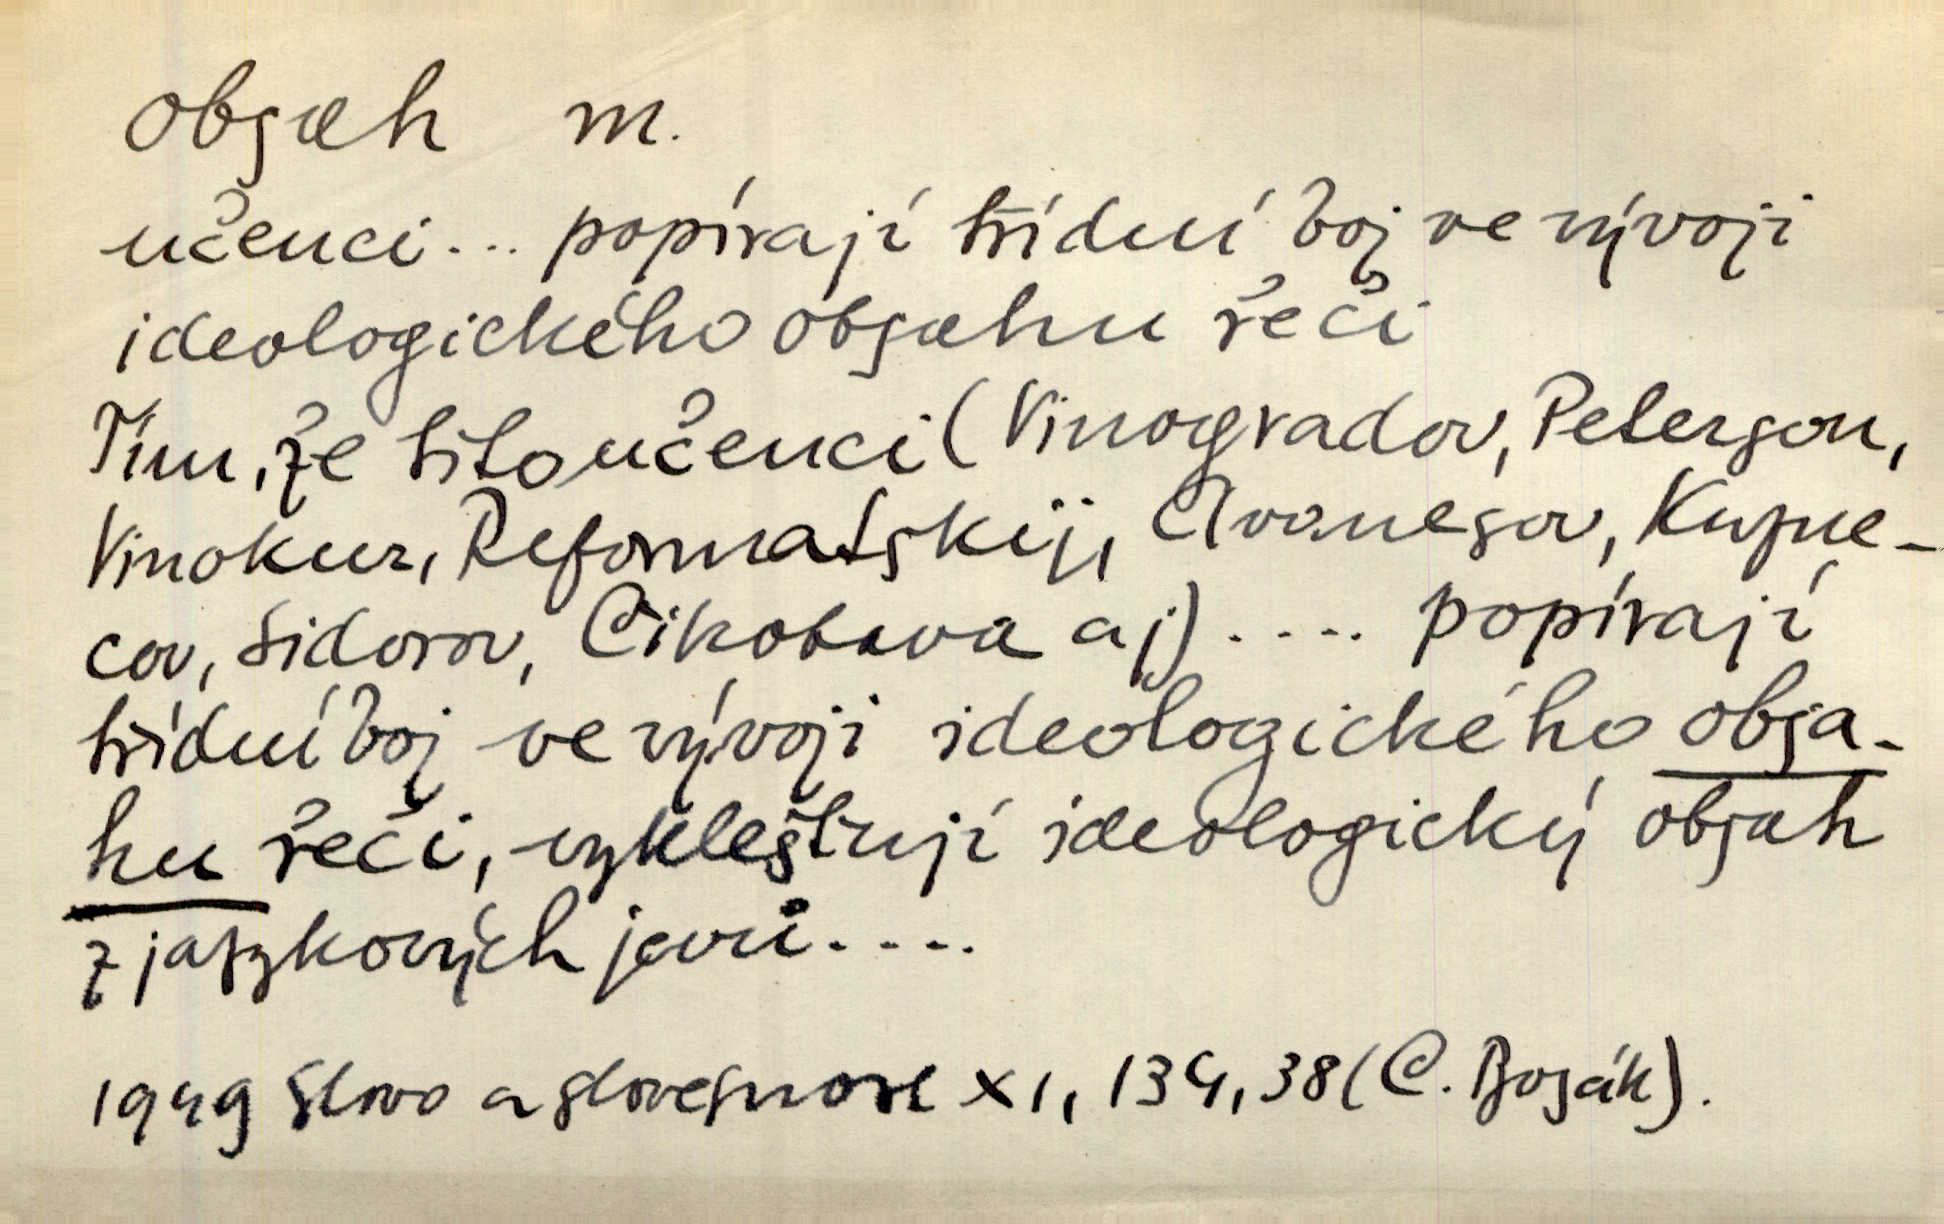 obsah m.
učenci... popírají třídní boj ve vývoji
ideologického obsahu řeči
Tím, že tito učenci (Vinogradov, Peterson,
Vinokur, Reformatskij, Avanesov, Kuzne-
cov, Sidorov, Čikobava aj) .... popírají
třídní boj ve vývoji ideologického obsa-
hu řeči, vyklešťují ideologický obsah
z jazykových jevů....
1949 Slovo a slovesnost XI, 134, 38 (C. Bosák).